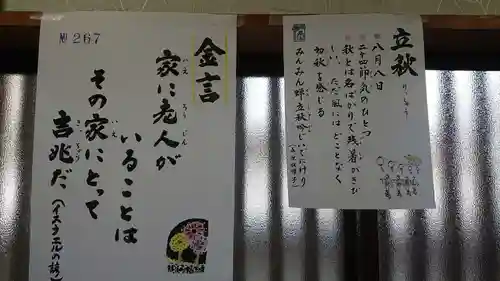 №267
金言
家に老人が
いることは
その家にとって
吉兆だ
(イスラエルの諺)
立秋
りっしゅう
八月八日
二十四節気のひとつ
秋とは名ばかりで残暑がきび
しい ただ風にはどことなく
初秋を感じる
みんみん蝉立秋吟じいでにけり